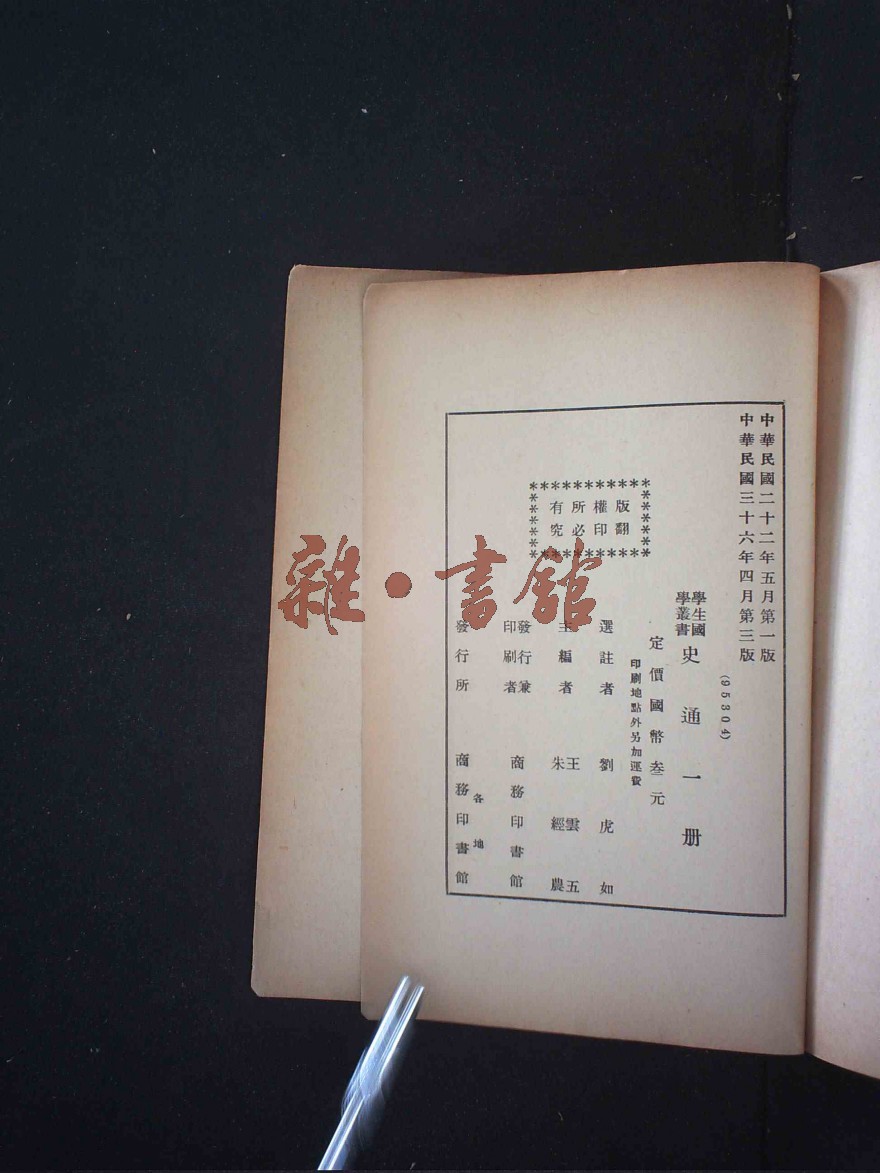 中華民國二十二年五月第一版
中華民國三十六年四月第三版
(95304)
學生國學叢書 史通一册
定價國幣叁元
印刷地點外另加運費
版權所有
翻印必究
選註者 劉虎如
主編者 王雲五 朱經農
發行兼印刷者 商務印書館
發行所 各地 商務印書館
雜·書館